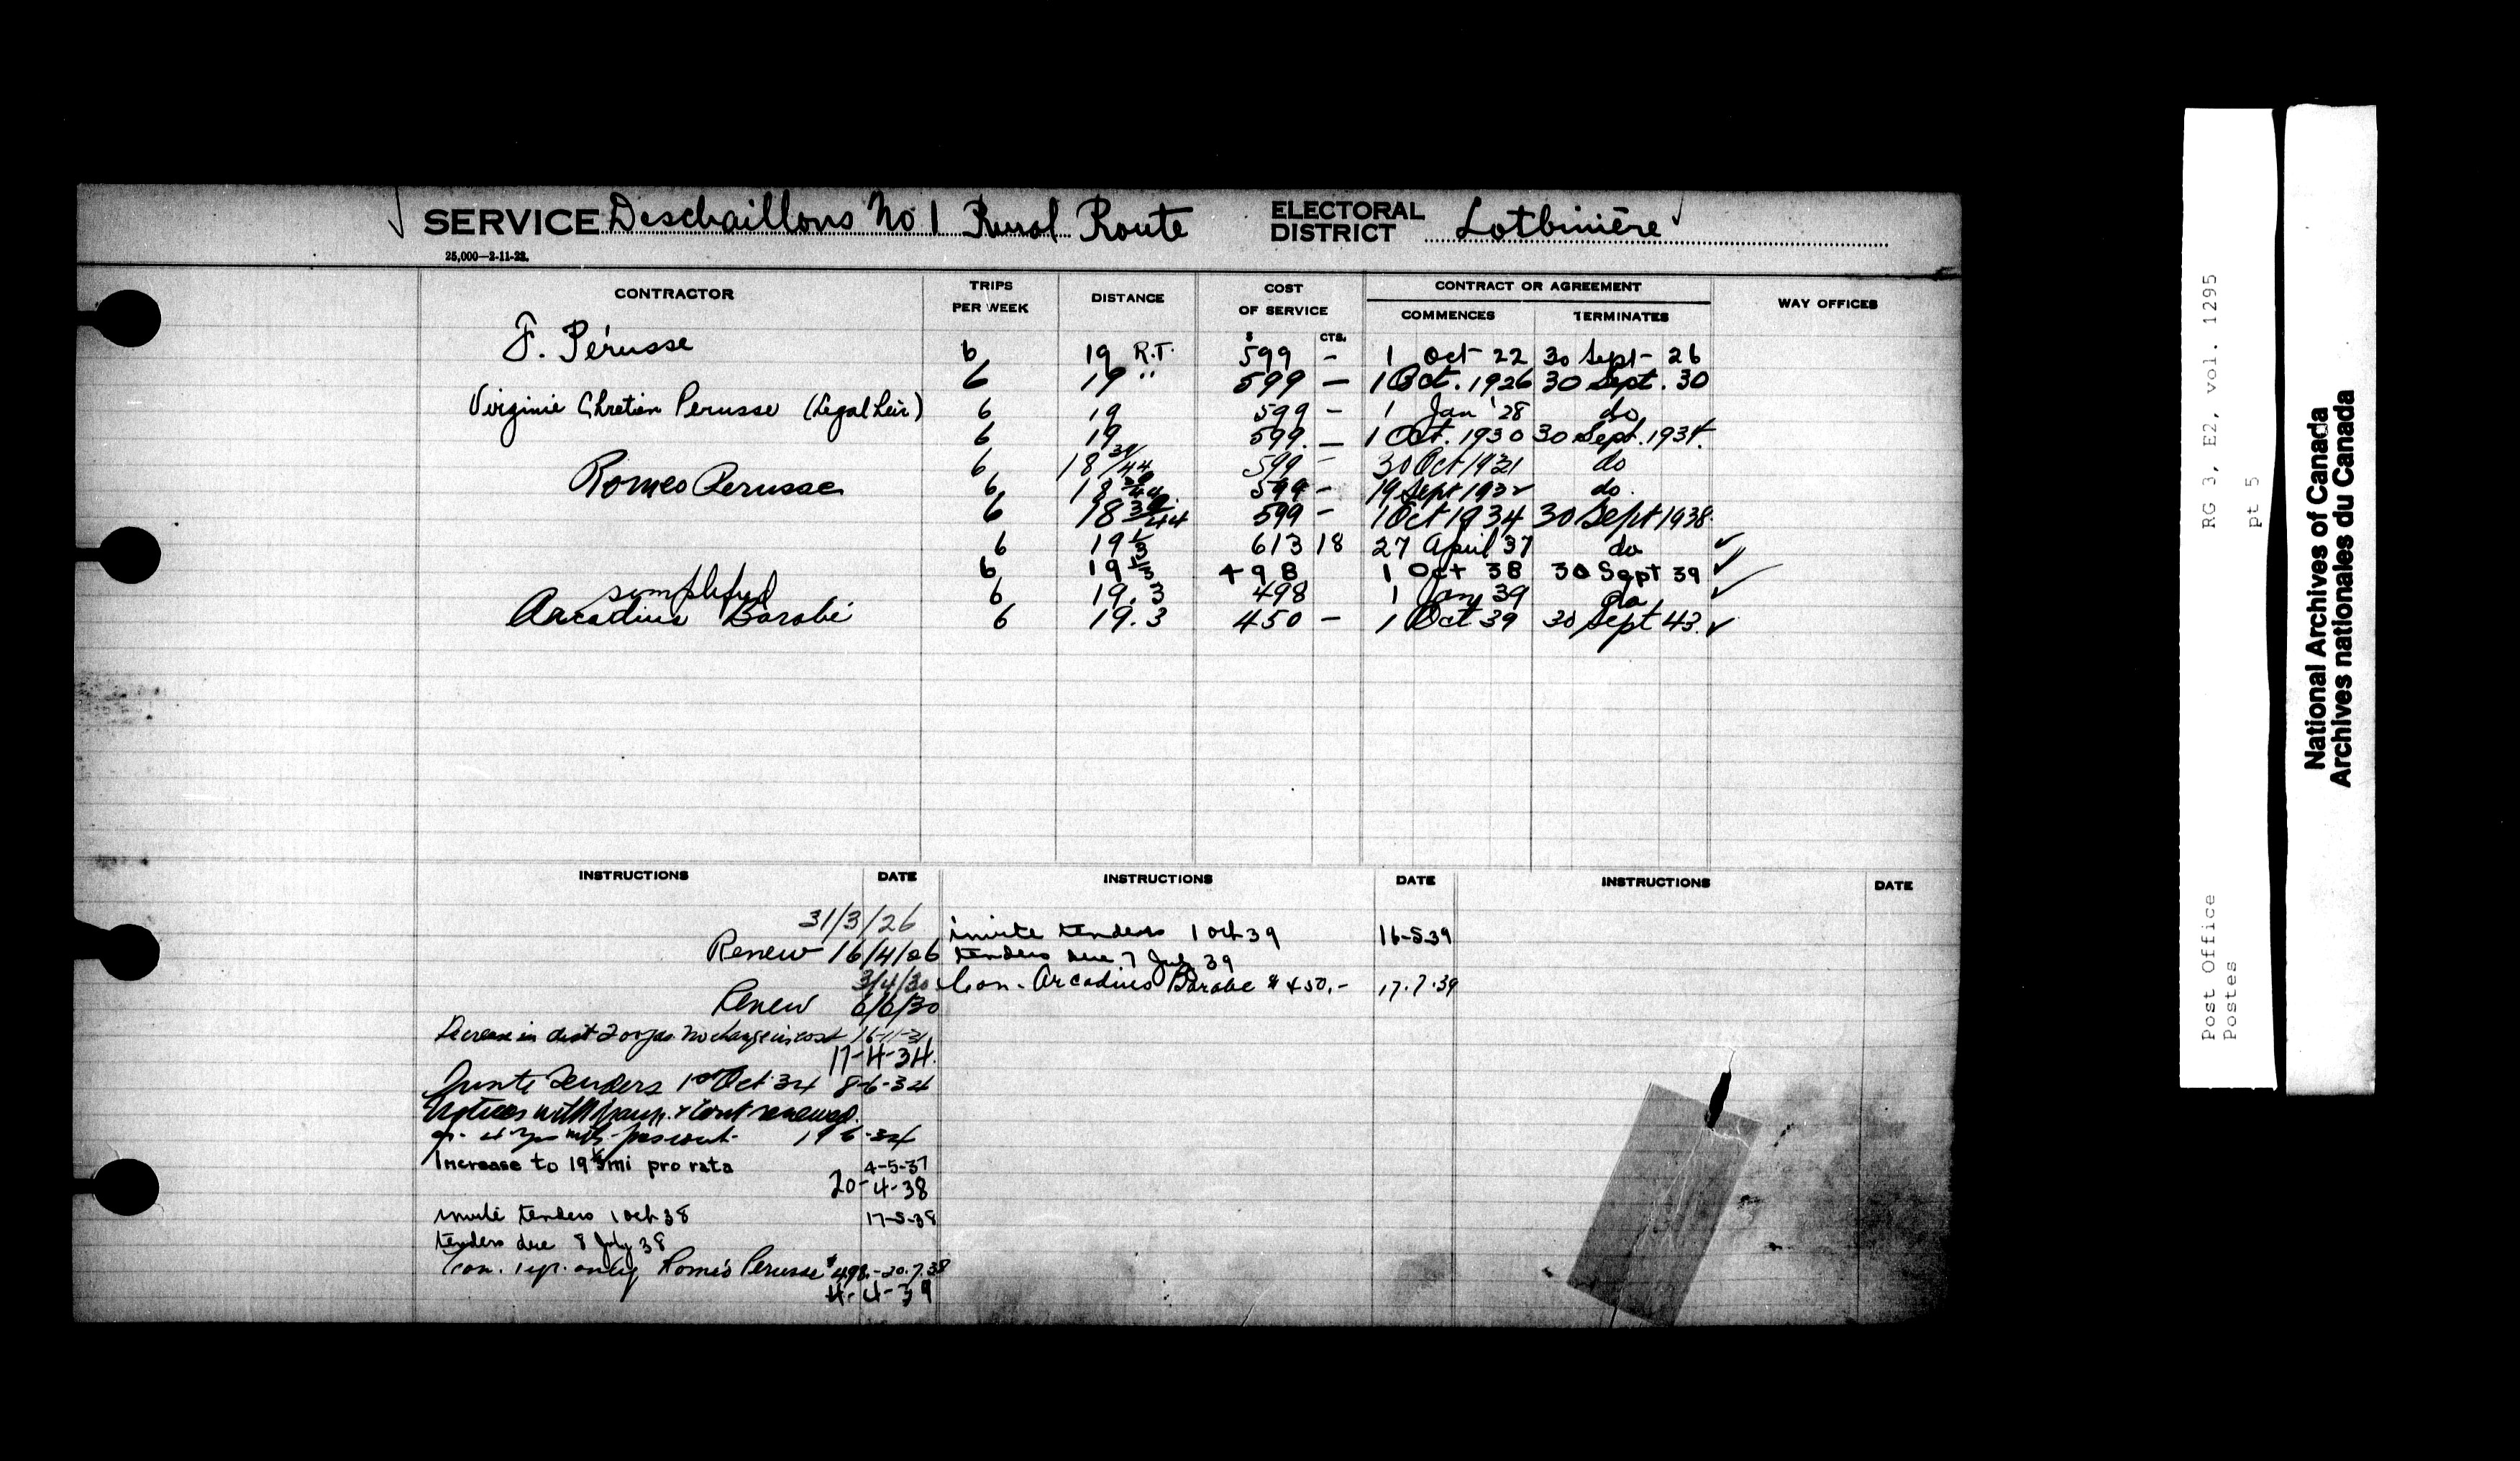 SERVICE Deschaillons No 1 Rural Route ELECTORAL DISTRICT Lotbinière
25,000—2-11-22.
CONTRACTOR TRIPS PER WEEK DISTANCE COST OF SERVICE CONTRACT OR AGREEMENT WAY OFFICES
COMMENCES TERMINATES
$ CTS.
F. Pérusse 6 19 R.T. 599 - 1 Oct 22 30 Sept - 26
6 19 " 599 - 1 Oct. 1926 30 Sept. 30
Virginie Chretien Perusse (Legal heir) 6 19 599 - 1 Jan '28 do
6 19 599. - 1 Oct. 1930 30 Sept. 1934.
6 18 39/44 599 - 30 Oct 1931 do
Romeo Perusse 6 18 599 - 19 Sept 1932 do.
6 18 39/44 599 - 1 Oct 1934 30 Sept 1938.
6 19 1/3 613 18 27 April 37 do
6 19 1/3 498 1 Oct 38 30 Sept 39
simplified 6 19.3 498 1 Jan 39 do
Arcadius Barabé 6 19.3 450 - 1 Oct 39 30 Sept 43.
INSTRUCTIONS DATE INSTRUCTIONS DATE INSTRUCTIONS DATE
31/3/26
Renew 16/4/26
3/4/30
Renew 6/6/30
Decrease in dist 200 yds. No change in cost 16-11-31
17-4-34.
Invite Tenders 1st Oct 34 8-6-34
Notices withdrawn & Cont renewed.
19 6-34
Increase to 19 1/3 mi pro rata 4-5-37
20-4-38
invite tenders 1 oct 38 17-5-38
tenders due 8 July 38
Con. 1 yr. only Roméo Perusse $498.- 20.7.38
4-4-39
invite tenders 1 Oct 39 16-5-39
tenders due 7 July 39
Con. Arcadius Barabe $450.- 17.7.39
RG 3, E2, vol. 1295
pt 5
Post Office
Postes
National Archives of Canada
Archives nationales du Canada